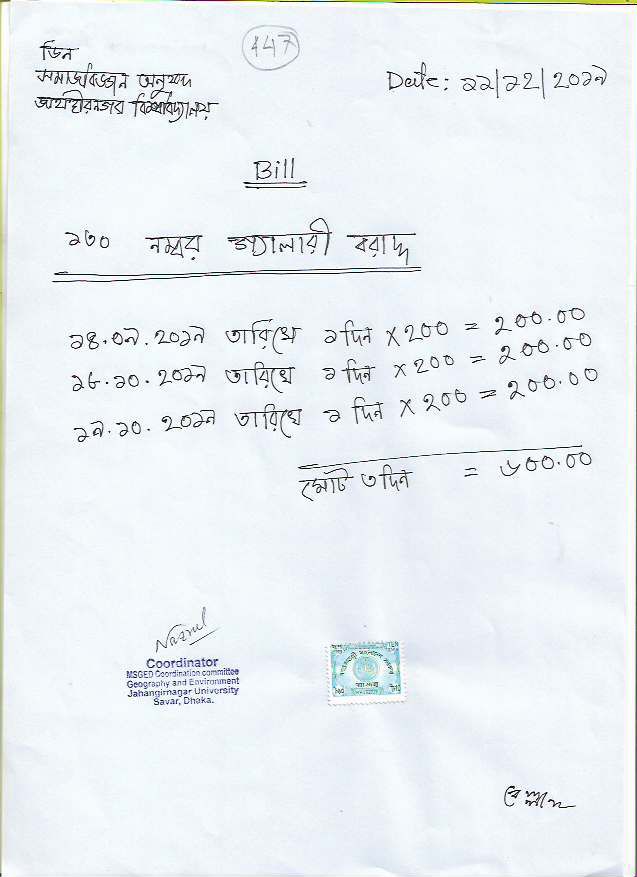 447
ডিন
সমাজবিজ্ঞান অনুষদ
জাহাঙ্গীরনগর বিশ্ববিদ্যালয়
Date: ১১/১২/২০১৯
Bill
১৩০ নম্বর গ্যালারী বরাদ্দ
১৪.০৯.২০১৯ তারিখে ১ দিন X ২00 = ২00.00
১৮.১০.২০১৯ তারিখে ১ দিন X ২00 = ২00.00
১৯.১০.২০১৯ তারিখে ১ দিন X ২00 = ২00.00
মোট ৩ দিন = ৬00.00
Nazrul
Coordinator
MSGED Coordination committee
Geography and Environment
Jahangirnagar University
Savar, Dhaka.